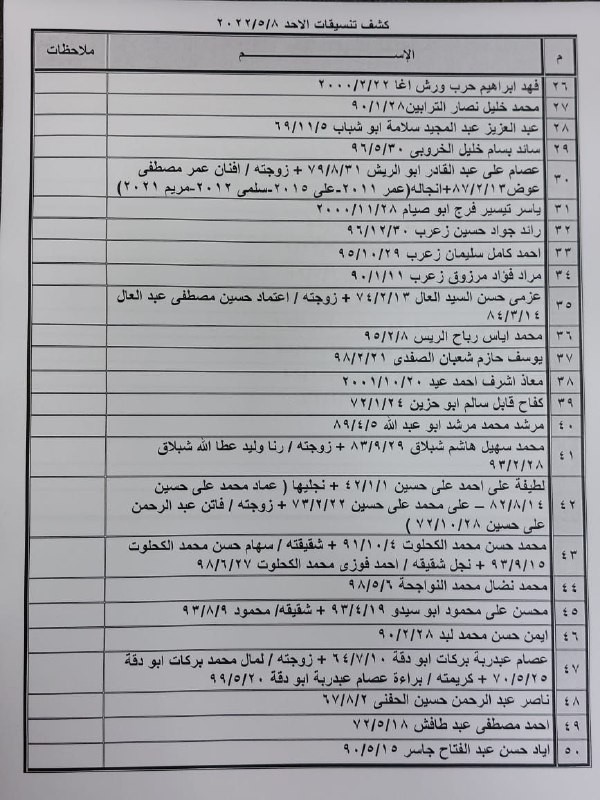 كشف تنسيقات الاحد ٢٠٢٢/٥/٨
م الإســـــــم ملاحظات
٢٦ فهد ابراهيم حرب ورش اغا ٢٠٠٠/٢/٢٢
٢٧ محمد خليل نصار الترابين ٩٠/١/٢٨
٢٨ عبد العزيز عبد المجيد سلامة ابو شباب ٦٩/١١/٥
٢٩ سائد بسام خليل الخروبي ٩٦/٥/٣٠
٣٠ عصام على عبد القادر ابو الريش ٧٩/٨/٣١ + زوجته / افنان عمر مصطفى
عوض ٨٧/٢/١٣+انجاله(عمر ٢٠١١-على ٢٠١٥-سلمى ٢٠١٢-مريم ٢٠٢١)
٣١ ياسر تيسير فرج ابو صيام ٢٠٠٠/١١/٢٨
٣٢ رائد جواد حسين زعرب ٩٦/١٢/٣٠
٣٣ احمد كامل سليمان زعرب ٩٥/١٠/٢٩
٣٤ مراد فؤاد مرزوق زعرب ٩٠/١/١١
٣٥ عزمى حسن السيد العال ٧٤/٢/١٣ + زوجته / اعتماد حسين مصطفى عبد العال
٨٤/٣/١٤
٣٦ محمد اياس رباح الريس ٩٥/٢/٨
٣٧ يوسف حازم شعبان الصفدى ٩٨/٢/٢١
٣٨ معاذ اشرف احمد عيد ٢٠٠١/١٠/٢٠
٣٩ كفاح قابل سالم ابو حزين ٧٢/١/٢٤
٤٠ مرشد محمد مرشد ابو عبد الله ٨٩/٤/٥
٤١ محمد سهيل هاشم شبلاق ٨٣/٩/٢٩ + زوجته / رنا وليد عطا الله شبلاق
٩٣/٢/٢٨
٤٢ لطيفة على احمد على حسين ٤٢/١/١ + نجليها ( عماد محمد على حسين
٨٢/٨/١٤ – على محمد على حسين ٧٣/٢/٢٢ + زوجته / فاتن عبد الرحمن
على حسين ٧٢/١٠/٢٨ )
٤٣ محمد حسن محمد الكحلوت ٩١/١٠/٤ + شقيقته / سهام حسن محمد الكحلوت
٩٣/٩/١٥ + نجل شقيقه / احمد فوزى محمد الكحلوت ٩٨/٦/٢٧
٤٤ محمد نضال محمد النواجحة ٩٨/٥/٦
٤٥ محسن على محمود ابو سيدو ٩٣/٤/١٩ + شقيقه/ محمود ٩٣/٨/٩
٤٦ ايمن حسن محمد لبد ٩٠/٢/٢٨
٤٧ عصام عبدربة بركات ابو دقة ٦٤/٧/١٠ + زوجته / لمال محمد بركات ابو دقة
٧٠/٥/٢٥ + كريمته / براءة عصام عبدربة ابو دقة ٩٩/٥/٢٠
٤٨ ناصر عبد الرحمن حسين الحفنى ٦٧/٨/٢
٤٩ احمد مصطفى عبد طافش ٧٢/٥/١٨
٥٠ اياد حسن عبد الفتاح جاسر ٩٠/٥/١٥